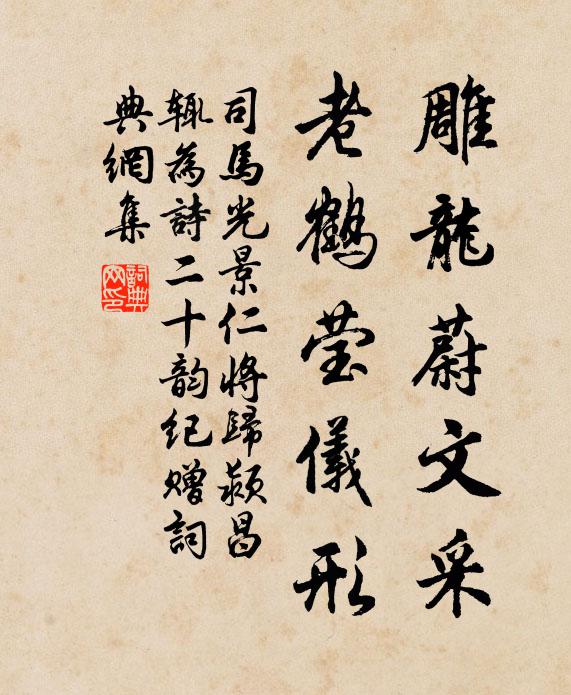 雕龍蔚文采
老鶴莹儀形
司馬光景仁將歸颍昌
輒為詩二十韵纪赠詞
典網集
詞典網印